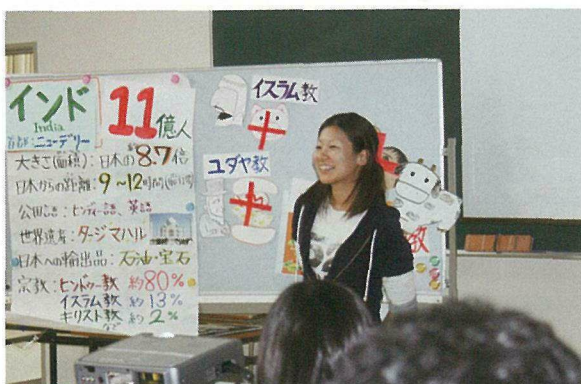 インド
India
首都:ニューデリー
11億人
大きさ(面積):日本の8.7倍
日本からの距離:9~12時間
公用語:ヒンディー語、英語
世界遺産:タージマハル
日本への輸出品:石油・宝石
宗教:ヒンドゥー教 約80%
イスラム教 約13%
キリスト教 約2%
など
イスラム教
ユダヤ教
教